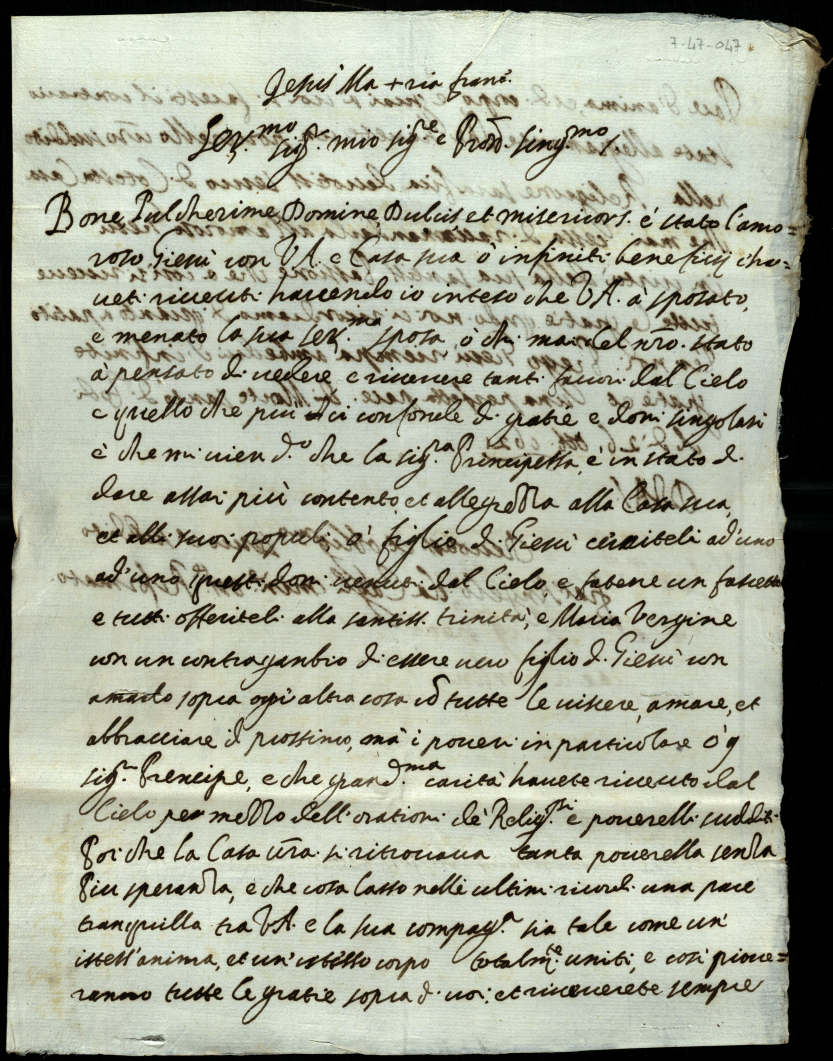 7-47-047
Jesus Ma + ria fran.
Ser.mo sig.r mio sig.re e Pron. sing.mo
Bone Pulcherime Domine Dulcis et misericors. é stato l'amo=
roso Giesù con V.A. e Casa sua ò infiniti beneficij cha=
veti riceuti havendo io inteso che V.A. à sposato,
e menato la sua ser.ma sposa, ò chi mai del nr̃o stato
à pensato di vedere e ricevere tanti favori dal Cielo
e quello che più ci confonde di gratie e doni singolari
è che mi vien d.o che la sig.ra Principessa, é in stato di
dare assai più contento, et allegrezza alla Casa sua,
et alli suoi populi ò figlio di Giesù ad'uno
ad'uno questi doni venuti dal Cielo, e fatene un fascetto
e tutti offeriteli alla santiss. trinità, e Maria Vergine
con un contracambio di essere vero figlio di Giesù con
amarlo sopra ogni altra cosa co tutte le viscere, amare, et
abbracciare il prossimo, mà i poveri in particolare ò
sig.r Prencipe, e che grand.ma carità havete riceuto dal
Cielo per mezzo dell'orationi de Relig.si e poverelli sudditi
Poi che la Casa vr̃a si ritrovava tanta poverella senza
Piu speranza, e che cosa lasso nelli ultimi ricordi una pace
tranquilla tra V.A. e la sua compag.a sia tale come un'
istess'anima, et un'istesso corpo totalm.te uniti, e così piove=
ranno tutte le gratie sopra di voi; et riceverete sempre